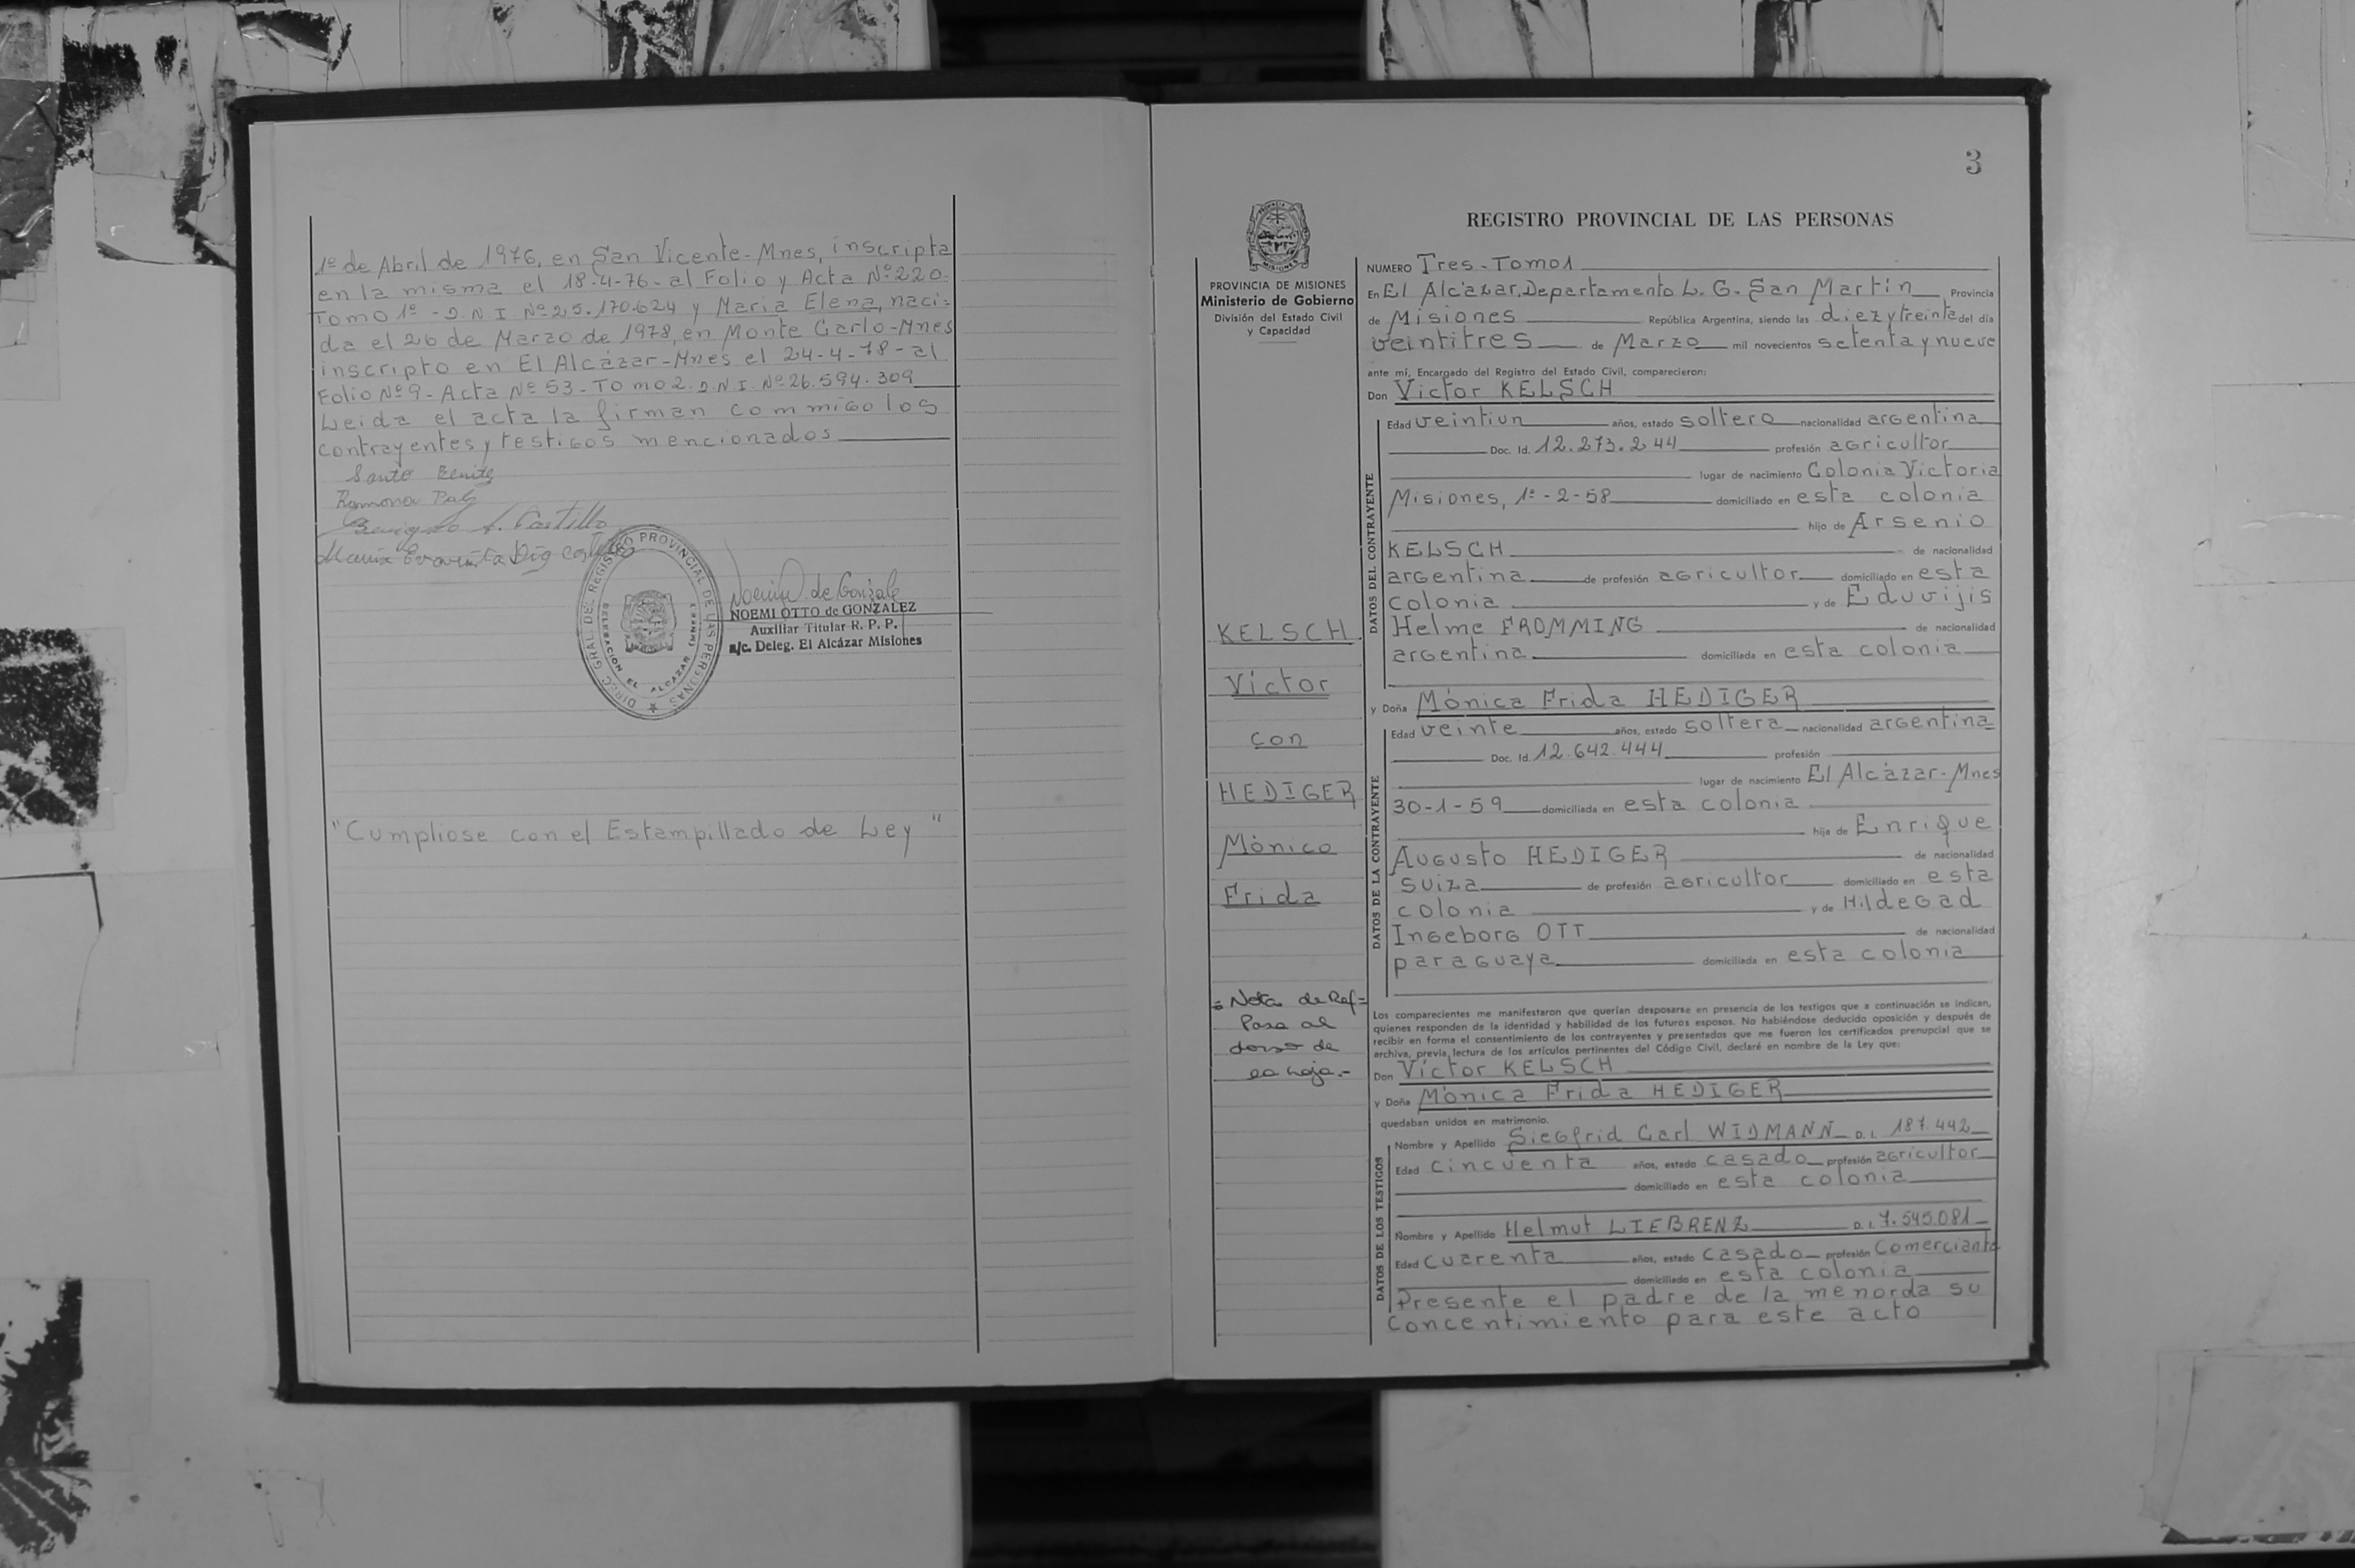 1º de Abril de 1976, en San Vicente-Mnes, inscripta
en la misma el 18-4-76- al Folio y Acta Nº 220-
Tomo 1º - D.N.I. Nº 25.170.624 y Maria Elena, naci=
da el 26 de Marzo de 1978, en Monte Carlo-Mnes
inscripto en El Alcázar-Mnes el 24-4-78- al
Folio Nº 9- Acta Nº 53- Tomo 2. D.N.I. Nº 26.594.309
Leida el acta la firman commigo los
contrayentes y testigos mencionados
Santo Benitez
Ramona
Castillo
Maria
DIREC. GRAL. DEL REGISTRO PROVINCIAL DE LAS PERSONAS
DELEGACION EL ALCAZAR (MNES)
Noemi O de Gonzalez
NOEMI OTTO de GONZALEZ
Auxiliar Titular R. P. P.
a/c. Deleg. El Alcázar Misiones
"Cumpliose con el Estampillado de Ley"
3
PROVINCIA DE MISIONES
Ministerio de Gobierno
División del Estado Civil
y Capacidad
KELSCH
Víctor
con
HEDIGER
Mónica
Frida
= Nota de Ref=
Pasa al
dorso de
la hoja.-
REGISTRO PROVINCIAL DE LAS PERSONAS
NUMERO Tres-Tomo1
En El Alcázar, Departamento L. G. San Martín Provincia
de Misiones República Argentina, siendo las diez y treinta del día
veintitres de Marzo mil novecientos setenta y nueve
ante mí, Encargado del Registro del Estado Civil, comparecieron:
Don Victor KELSCH
DATOS DEL CONTRAYENTE
Edad veintiun años, estado soltero nacionalidad argentina
Doc. Id. 12.273.244 profesión agricultor
lugar de nacimiento Colonia Victoria
Misiones, 1º-2-58 domiciliado en esta colonia
hijo de Arsenio
KELSCH de nacionalidad
argentina de profesión agricultor domiciliado en esta
colonia y de Eduvijis
Helme FROMMING de nacionalidad
argentina domiciliada en esta colonia
y Doña Mónica Frida HEDIGER
DATOS DE LA CONTRAYENTE
Edad veinte años, estado soltera nacionalidad argentina
Doc. Id. 12.642.444 profesión
lugar de nacimiento El Alcázar-Mnes
30-1-59 domiciliada en esta colonia
hija de Enrique
Augusto HEDIGER de nacionalidad
suiza de profesión agricultor domiciliado en esta
colonia y de Hildegad
Ingeborg OTT de nacionalidad
paraguaya domiciliada en esta colonia
Los comparecientes me manifestaron que querían desposarse en presencia de los testigos que a continuación se indican,
quienes responden de la identidad y habilidad de los futuros esposos. No habiéndose deducido oposición y después de
recibir en forma el consentimiento de los contrayentes y presentados que me fueron los certificados prenupcial que se
archiva, previa lectura de los artículos pertinentes del Código Civil, declaré en nombre de la Ley que:
Don Víctor KELSCH
y Doña Mónica Frida HEDIGER
quedaban unidos en matrimonio.
DATOS DE LOS TESTIGOS
Nombre y Apellido Siegfrid Carl WIDMANN D. I. 187.442
Edad cincuenta años, estado casado profesión agricultor
domiciliado en esta colonia
Nombre y Apellido Helmut LIEBRENZ D. I. 7.545.081
Edad cuarenta años, estado casado profesión Comerciante
domiciliado en esta colonia
Presente el padre de la menor da su
Concentimiento para este acto